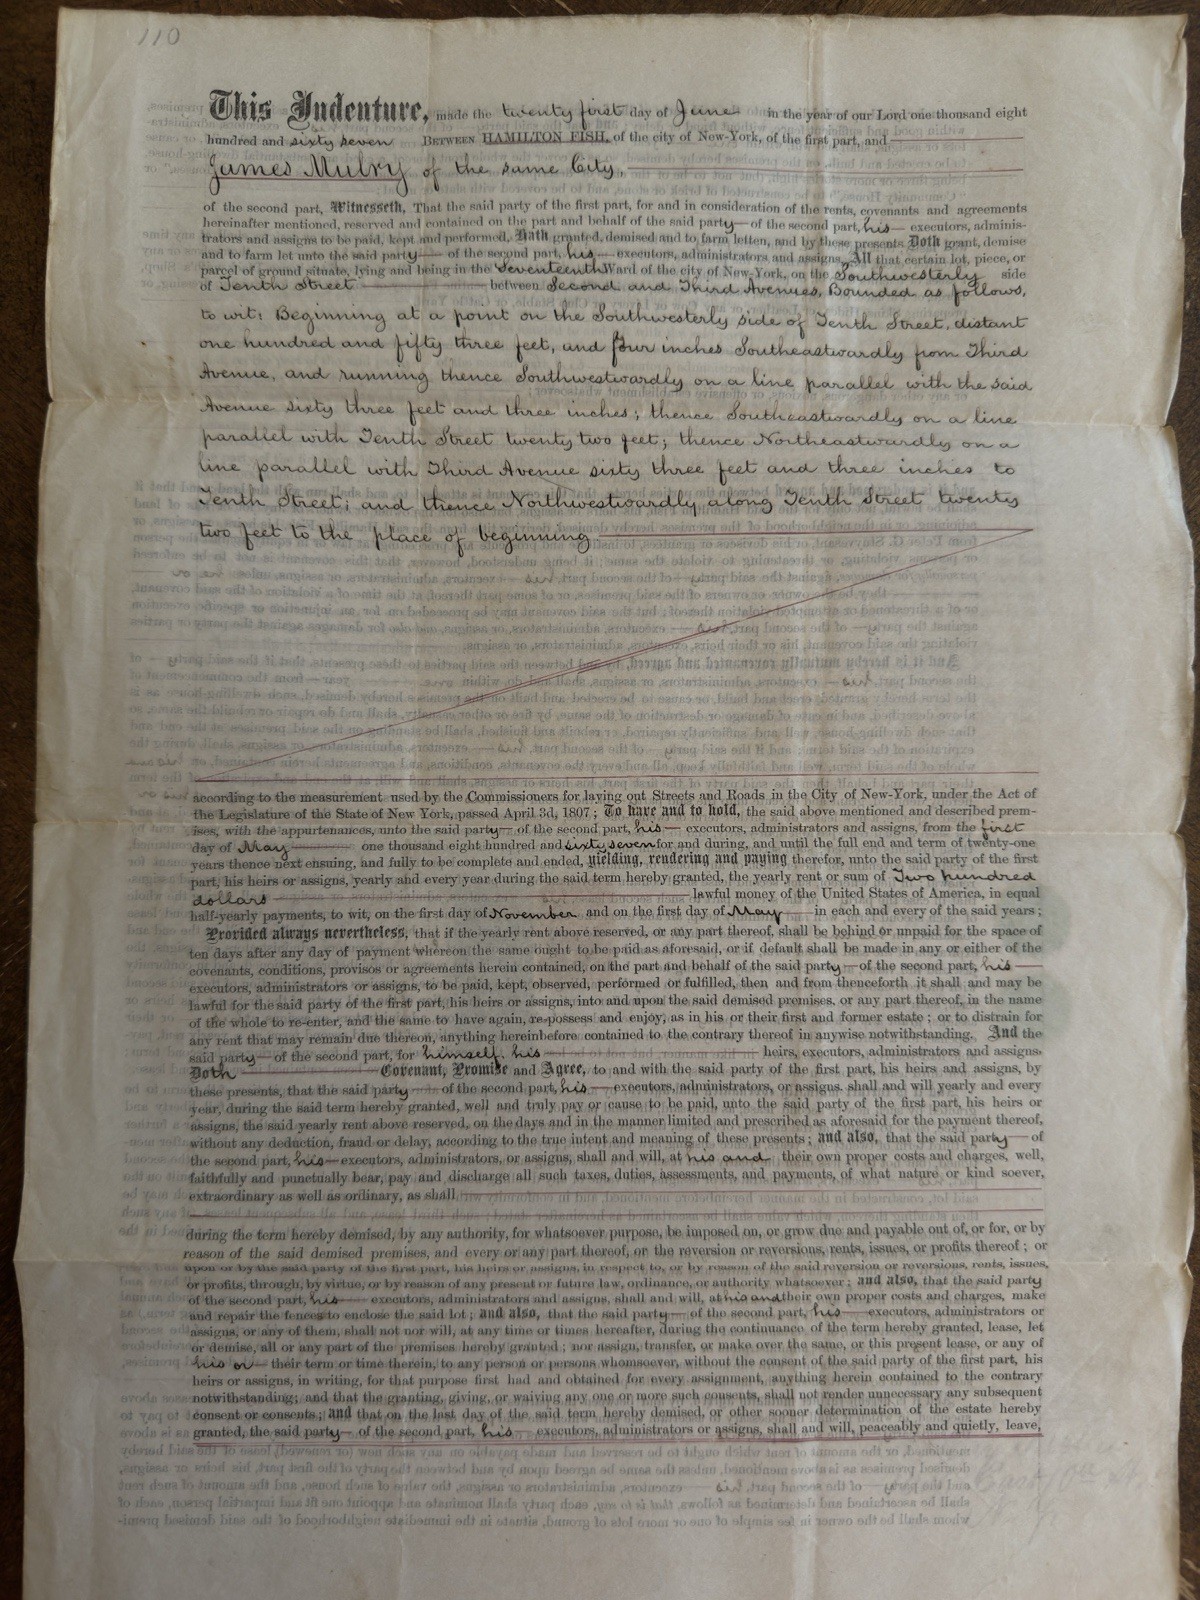 110
This Indenture, made the twenty first day of June in the year of our Lord one thousand eight
hundred and sixty seven BETWEEN HAMILTON FISH, of the city of New-York, of the first part, and
James Mulry of the same City,
of the second part, Witnesseth, That the said party of the first part, for and in consideration of the rents, covenants and agreements
hereinafter mentioned, reserved and contained on the part and behalf of the said party of the second part, his executors, adminis-
trators and assigns to be paid, kept and performed, Hath granted, demised and to farm letten, and by these presents Doth grant, demise
and to farm let unto the said party of the second part, his executors, administrators and assigns, All that certain lot, piece, or
parcel of ground situate, lying and being in the Seventeenth Ward of the city of New-York, on the Southwesterly side
of Tenth Street between Second and Third Avenues, Bounded as follows,
to wit: Beginning at a point on the Southwesterly side of Tenth Street, distant
one hundred and fifty three feet, and four inches Southeastwardly from Third
Avenue, and running thence Southwestwardly on a line parallel with the said
Avenue sixty three feet and three inches; thence Southeastwardly on a line
parallel with Tenth Street twenty two feet; thence Northeastwardly on a
line parallel with Third Avenue sixty three feet and three inches to
Tenth Street; and thence Northwestwardly along Tenth Street twenty
two feet to the place of beginning
according to the measurement used by the Commissioners for laying out Streets and Roads in the City of New-York, under the Act of
the Legislature of the State of New York, passed April 3d, 1807; To have and to hold, the said above mentioned and described prem-
ises, with the appurtenances, unto the said party of the second part, his executors, administrators and assigns, from the first
day of May one thousand eight hundred and sixty seven for and during, and until the full end and term of twenty-one
years thence next ensuing, and fully to be complete and ended, yielding, rendering and paying therefor, unto the said party of the first
part, his heirs or assigns, yearly and every year during the said term hereby granted, the yearly rent or sum of Two hundred
dollars lawful money of the United States of America, in equal
half-yearly payments, to wit, on the first day of November and on the first day of May in each and every of the said years;
Provided always nevertheless, that if the yearly rent above reserved, or any part thereof, shall be behind or unpaid for the space of
ten days after any day of payment whereon the same ought to be paid as aforesaid, or if default shall be made in any or either of the
covenants, conditions, provisos or agreements herein contained, on the part and behalf of the said party of the second part, his
executors, administrators or assigns, to be paid, kept, observed, performed or fulfilled, then and from thenceforth it shall and may be
lawful for the said party of the first part, his heirs or assigns, into and upon the said demised premises, or any part thereof, in the name
of the whole to re-enter, and the same to have again, re-possess and enjoy, as in his or their first and former estate; or to distrain for
any rent that may remain due thereon, anything hereinbefore contained to the contrary thereof in anywise notwithstanding. And the
said party of the second part, for himself, his heirs, executors, administrators and assigns.
Doth Covenant, Promise and Agree, to and with the said party of the first part, his heirs and assigns, by
these presents, that the said party of the second part, his executors, administrators, or assigns. shall and will yearly and every
year, during the said term hereby granted, well and truly pay or cause to be paid, unto the said party of the first part, his heirs or
assigns, the said yearly rent above reserved, on the days and in the manner limited and prescribed as aforesaid for the payment thereof,
without any deduction, fraud or delay, according to the true intent and meaning of these presents; and also, that the said party of
the second part, his executors, administrators, or assigns, shall and will, at his and their own proper costs and charges, well,
faithfully and punctually bear, pay and discharge all such taxes, duties, assessments, and payments, of what nature or kind soever,
extraordinary as well as ordinary, as shall
during the term hereby demised, by any authority, for whatsoever purpose, be imposed on, or grow due and payable out of, or for, or by
reason of the said demised premises, and every or any part thereof, or the reversion or reversions, rents, issues, or profits thereof; or
upon or by the said party of the first part, his heirs or assigns, in respect to, or by reason of the said reversion or reversions, rents, issues,
or profits, through, by virtue, or by reason of any present or future law, ordinance, or authority whatsoever; and also, that the said party
of the second part, his executors, administrators and assigns, shall and will, at his and their own proper costs and charges, make
and repair the fences to enclose the said lot; and also, that the said party of the second part, his executors, administrators or
assigns, or any of them, shall not nor will, at any time or times hereafter, during the continuance of the term hereby granted, lease, let
or demise, all or any part of the premises hereby granted; nor assign, transfer, or make over the same, or this present lease, or any of
his or their term or time therein, to any person or persons whomsoever, without the consent of the said party of the first part, his
heirs or assigns, in writing, for that purpose first had and obtained for every assignment, anything herein contained to the contrary
notwithstanding; and that the granting, giving, or waiving any one or more such consents, shall not render unnecessary any subsequent
consent or consents; and that on the last day of the said term hereby demised, or other sooner determination of the estate hereby
granted, the said party of the second part, his executors, administrators or assigns, shall and will, peaceably and quietly, leave,